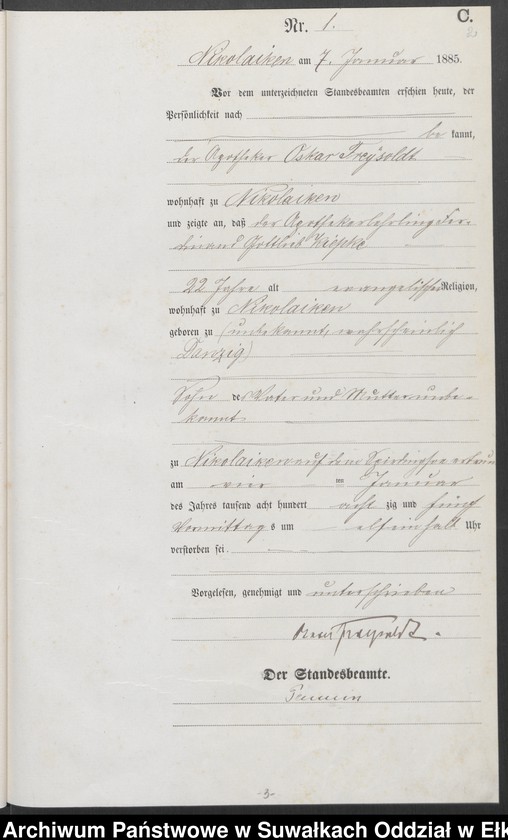 C.
2
Nr. 1.
Nikolaiken am 7. Januar 1885.
Vor dem unterzeichneten Standesbeamten erschien heute, der
Persönlichkeit nach
be kannt,
der Apotheker Oskar Freysoldt
wohnhaft zu Nikolaiken
und zeigte an, daß der Apothekerlehrling Fer-
dinand Gottlieb Kiepke
22 Jahre alt evangelischer Religion,
wohnhaft zu Nikolaiken
geboren zu (unbekannt, wahrscheinlich
Danzig)
Sohn des Vater und Mutter unbe-
kannt
zu Nikolaiken auf dem Spirdingsee
am vier ten Januar
des Jahres tausend acht hundert acht zig und fünf
Vormittag s um elf einhalb Uhr
verstorben sei.
Vorgelesen, genehmigt und unterschrieben
Oskar Freysoldt.
Der Standesbeamte.
-3-
Archiwum Państwowe w Suwałkach Oddział w Ełk